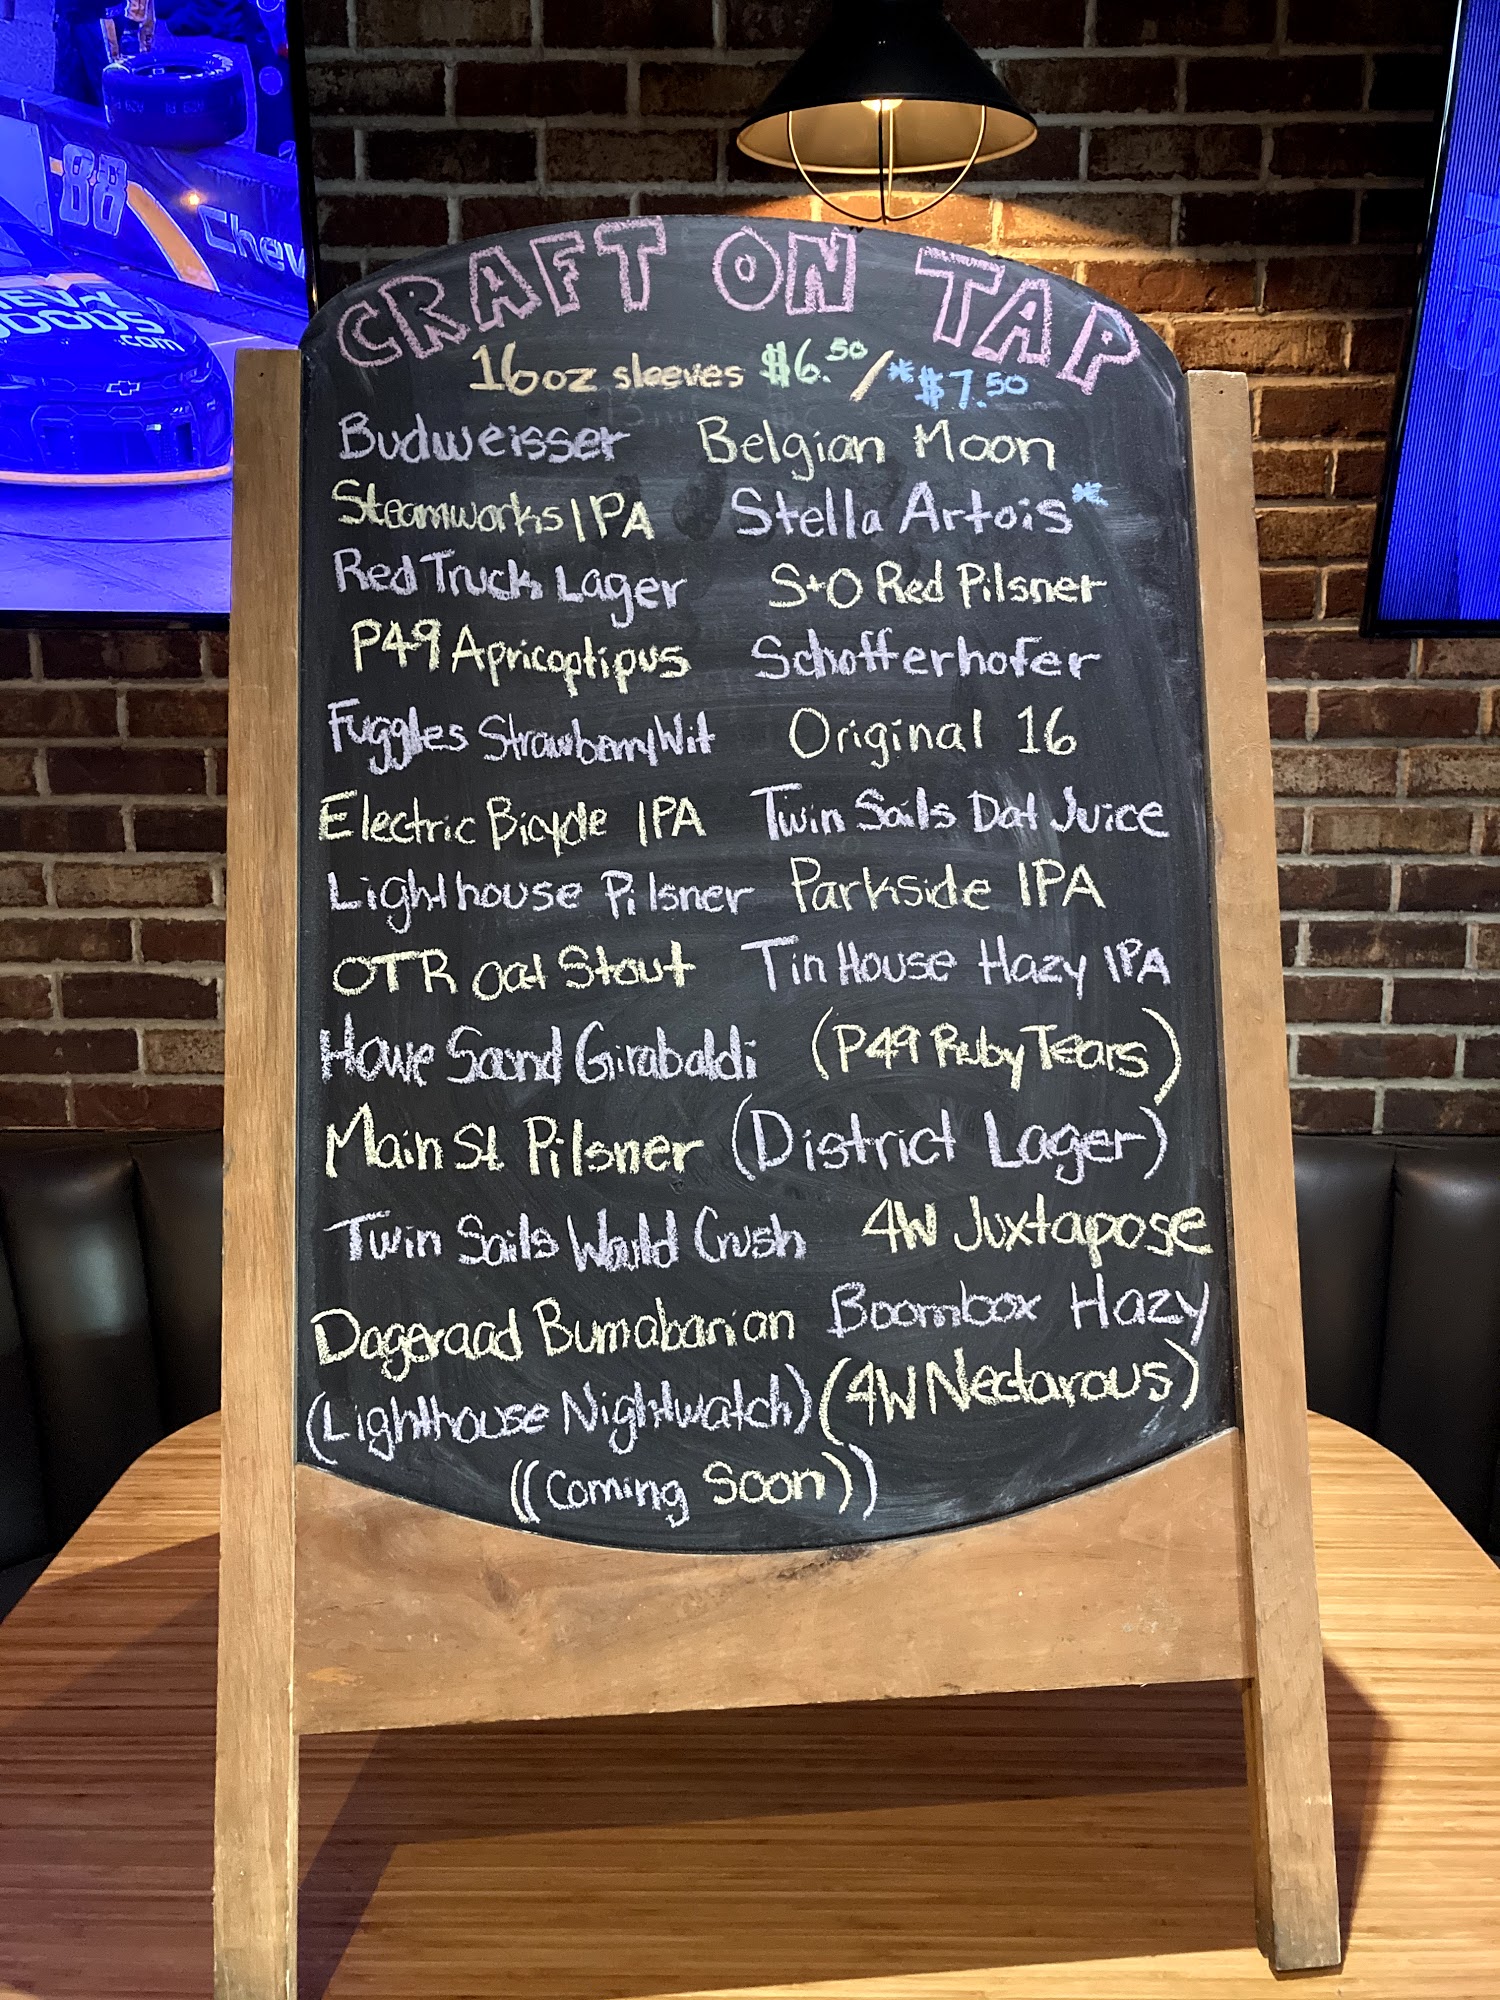 88
Chev
.com
CRAFT ON TAP
16oz sleeves $6.50/*$7.50
Budweisser Belgian Moon
Steamworks IPA Stella Artois*
Red Truck Lager S+O Red Pilsner
P49 Apricoptipus Schofferhofer
Fuggles Strawberry Wit Original 16
Electric Bicycle IPA Twin Sails Dat Juice
Lighthouse Pilsner Parkside IPA
OTR Oat Stout Tin House Hazy IPA
Howe Sound Girabaldi (P49 Ruby Tears)
Main St Pilsner (District Lager)
Twin Sails Would Crush 4W Juxtapose
Dageraad Bumabanian Boombox Hazy
(Lighthouse Nightwatch) (4W Nectarous)
((Coming Soon))